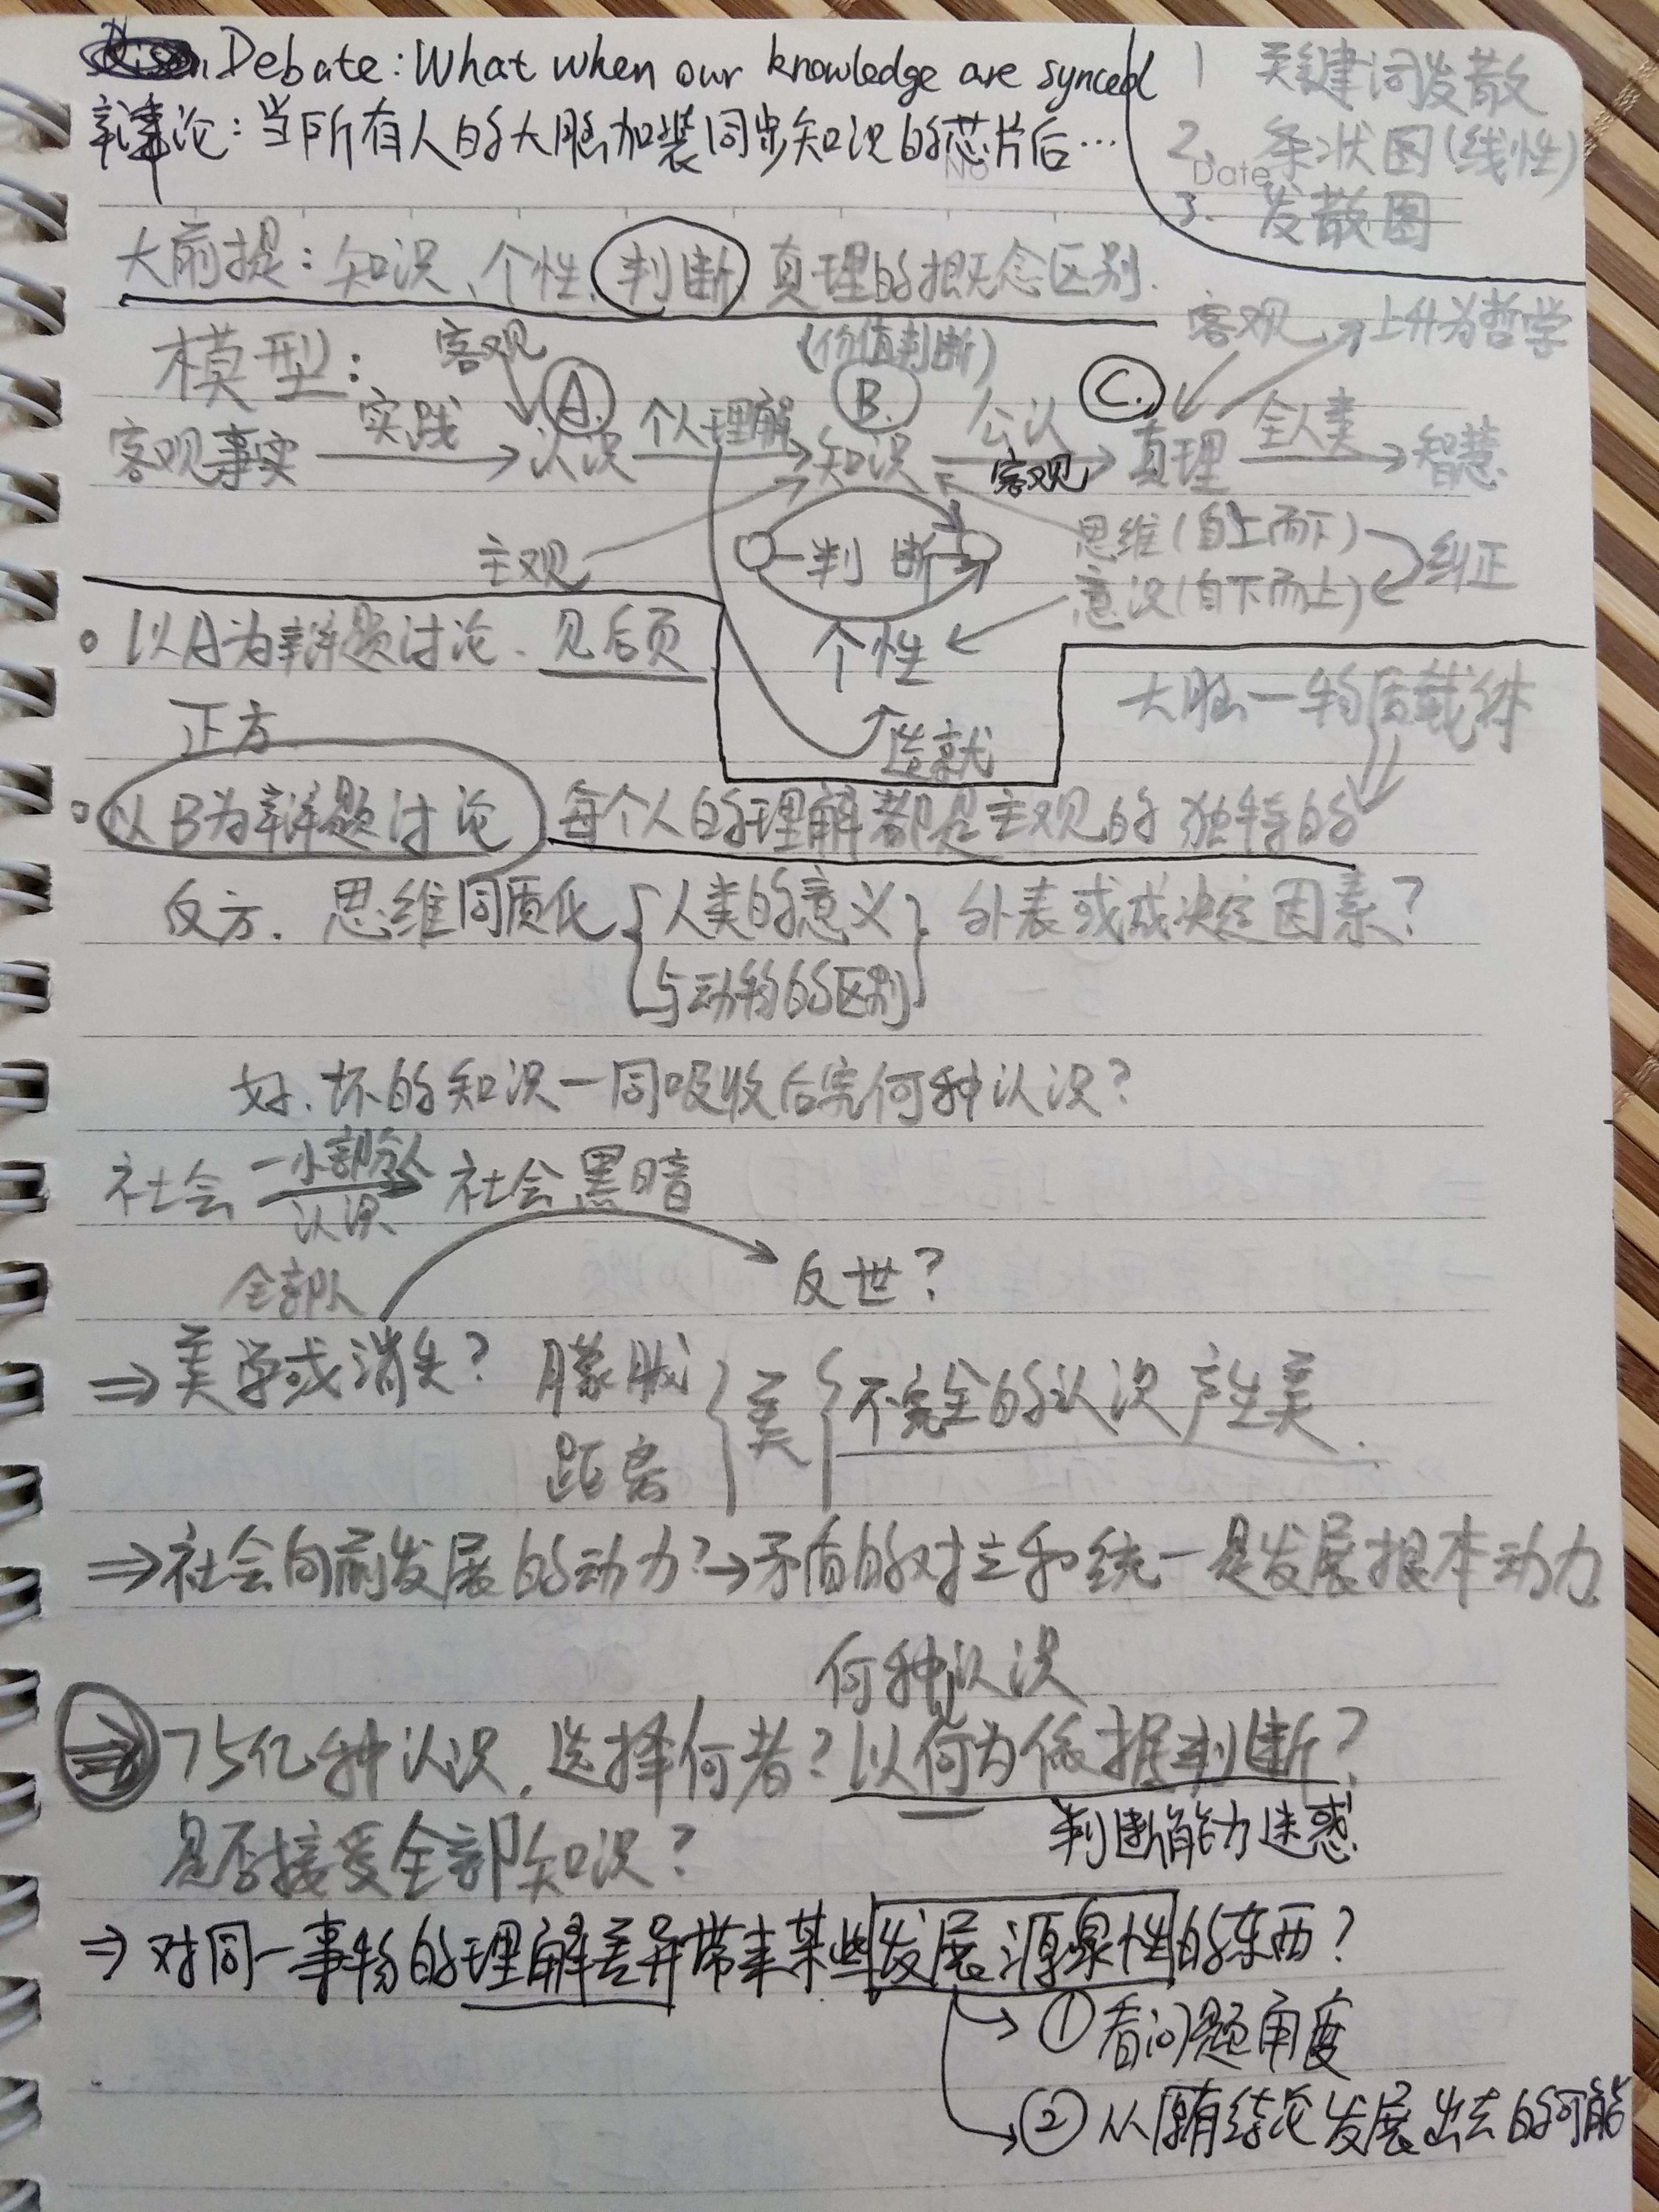 Debate: What when our knowledge are synced
辩论：当所有人的大脑加装同步知识的芯片后…
1 关键词发散
2、条状图(线性)
3. 发散图
No
Date
大前提：知识、个性、判断、真理的概念区别.
模型：
客观
(价值判断)
客观
上升为哲学
A.
B.
C.
客观事实 实践 认识 个人理解 知识 公认 客观 真理 全人类 智慧
主观
判断
思维(自上而下)
意识(自下而上)
纠正
个性
造就
。以A为辩题讨论. 见后页
大脑—物质载体
正方
。以B为辩题讨论 每个人的理解都是主观的 独特的
反方. 思维同质化 {人类的意义} 外表或成决定因素?
与动物的区别
好、坏的知识一同吸收后究何种认识?
社会 一小部分人 认识 社会黑暗
全部认
反世?
⇒美学或消失? 朦胧
距离
美 不完全的认识产生美.
⇒社会向前发展的动力?→矛盾的对立和统一是发展根本动力.
何种认识
⇒75亿种认识. 选择何者? 以何为依据判断?
判断能力迷惑
是否接受全部知识?
⇒对同一事物的理解差异带来某些发展源泉性的东西?
→①看问题角度
→②从原有结论发展出去的可能